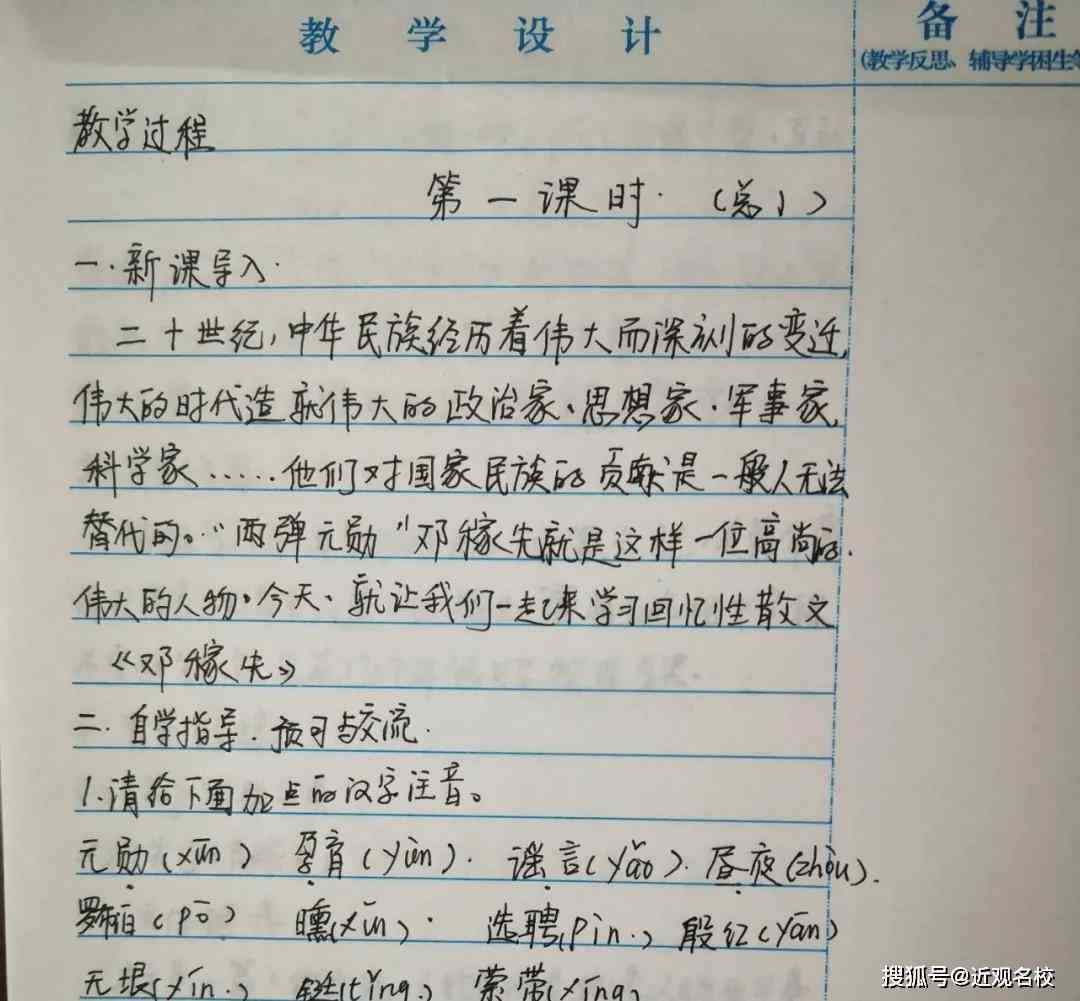 教学设计
备注
(教学反思、辅导学困生等
教学过程
第一课时.(总1)
一.新课导入.
二十世纪,中华民族经历着伟大而深刻的变迁,
伟大的时代造就伟大的政治家、思想家、军事家,
科学家……他们对国家民族的贡献是一般人无法
替代的。“两弹元勋”邓稼先就是这样一位高尚的、
伟大的人物。今天、就让我们一起来学习回忆性散文
《邓稼先》
二.自学指导.预习与交流.
1.请给下面加点的汉字注音。
元勋(xūn) 孕育(yùn). 谣言(yáo). 昼夜(zhòu).
(pō) 曛(xūn). 选聘(pìn.) 殷红(yān)
无垠(yín.) 铤(tǐng.) 萦带(yíng)
搜狐号@近观名校